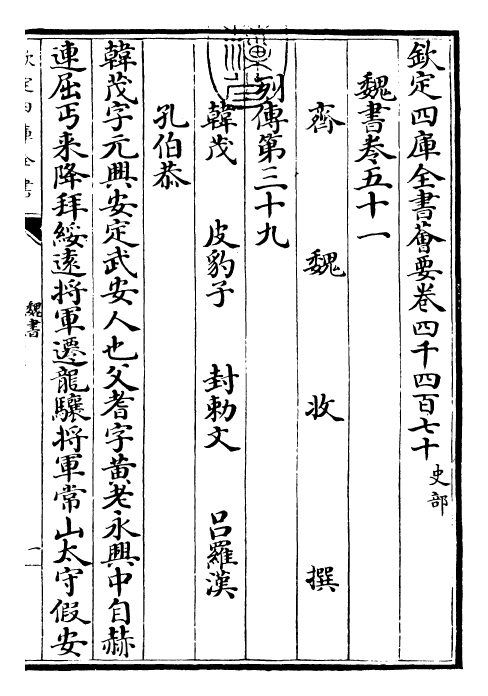 欽定四庫全書薈要卷四千四百七十 史部
魏書卷五十一
齊 魏 收 撰
列傳第三十九
韓茂 皮豹子 封勅文 呂羅漢
孔伯恭
韓茂字元興安定武安人也父耆字黄老永興中自赫
連屈丐来降拜綏遠將軍遷龍驤將軍常山太守假安
欽定四庫全書
魏書
一